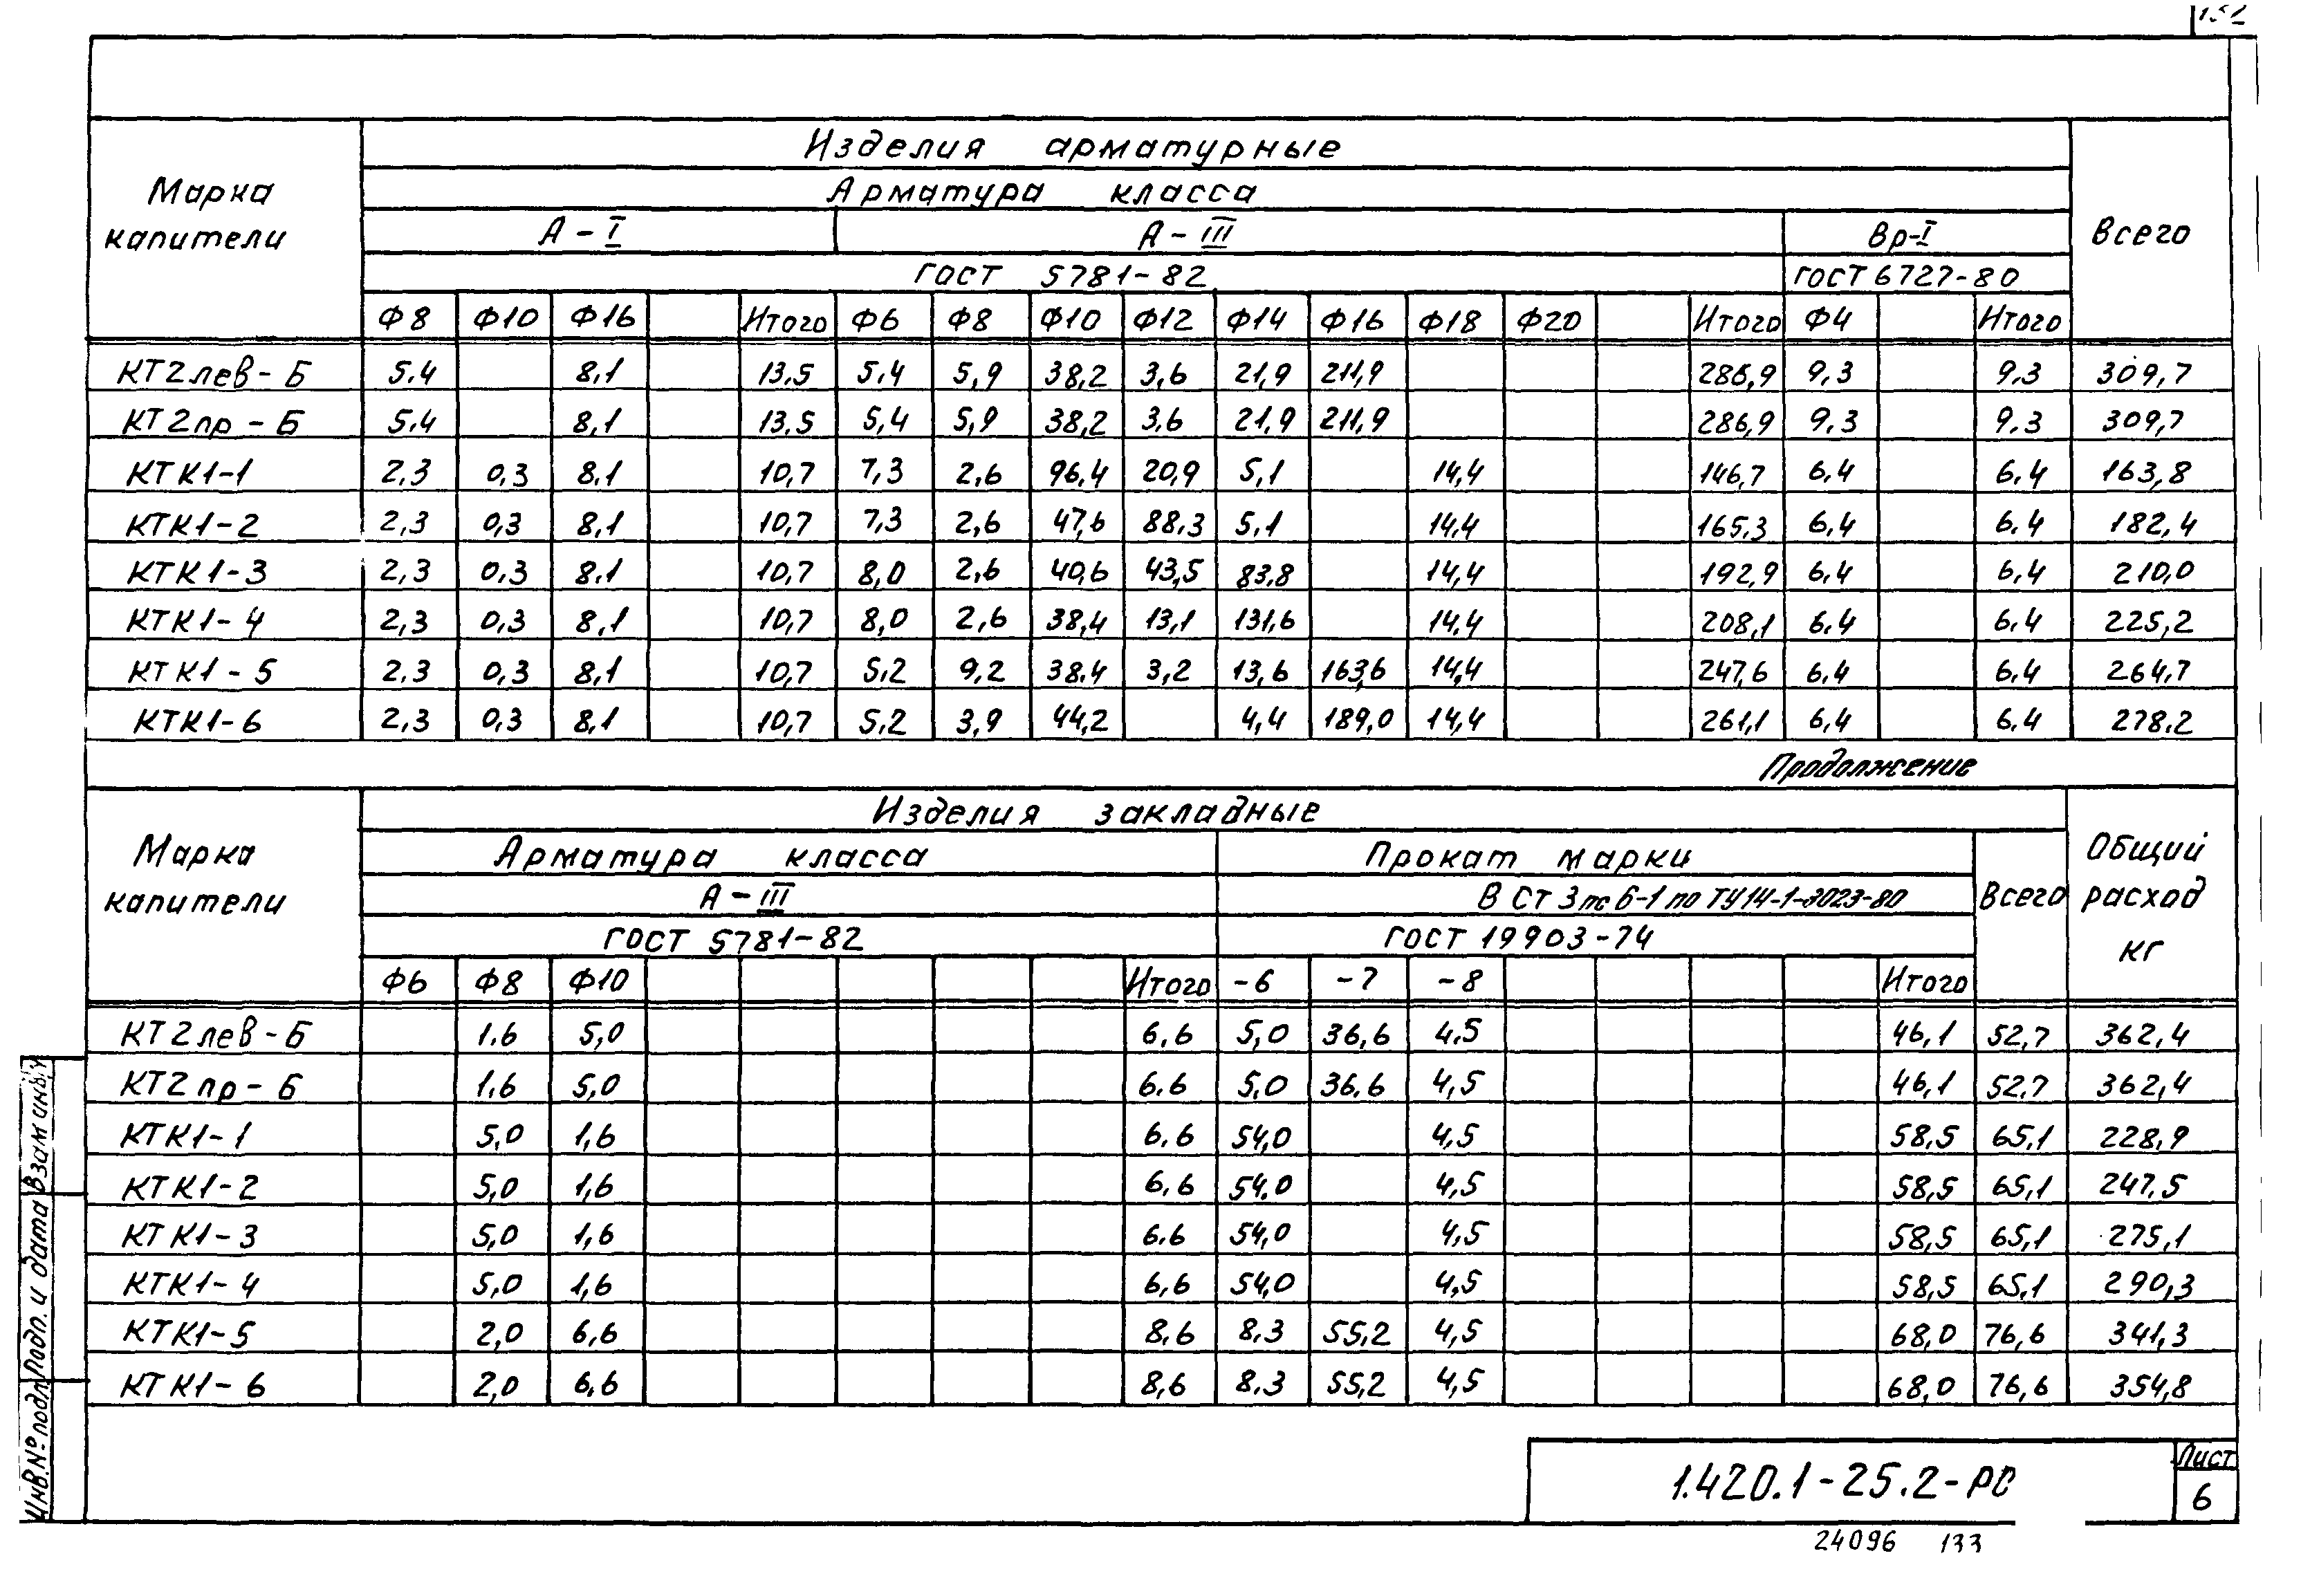 Марка капители
Изделия арматурные
Всего
Арматура класса
А-I А-III Вр-I
ГОСТ 5781-82 ГОСТ 6727-80
Ф8 Ф10 Ф16 Итого Ф6 Ф8 Ф10 Ф12 Ф14 Ф16 Ф18 Ф20 Итого Ф4 Итого
КТ2лев-Б 5.4 8,1 13,5 5,4 5,9 38,2 3,6 21,9 211,9 286,9 9,3 9.3 309,7
КТ2пр-Б 5.4 8,1 13.5 5,4 5,9 38,2 3,6 21,9 211,9 286,9 9,3 9.3 309,7
КТК1-1 2,3 0,3 8,1 10,7 7,3 2,6 96,4 20,9 5,1 14,4 146,7 6.4 6.4 163,8
КТК1-2 2,3 0,3 8,1 10,7 7,3 2,6 47,6 88,3 5,1 14,4 165,3 6,4 6.4 182,4
КТК1-3 2,3 0,3 8,1 10,7 8,0 2,6 40,6 43,5 83,8 14,4 192,9 6,4 6.4 210,0
КТК1-4 2,3 0,3 8,1 10,7 8,0 2,6 38,4 13,1 131,6 14,4 208,1 6,4 6.4 225,2
КТК1-5 2,3 0,3 8,1 10,7 5,2 9,2 38,4 3,2 13,6 163,6 14,4 247,6 6,4 6.4 264,7
КТК1-6 2,3 0,3 8,1 10,7 5,2 3,9 44,2 4,4 189,0 14,4 261,1 6,4 6.4 278,2
Продолжение
Марка капители
Изделия закладные
Общий расход кг
Арматура класса Прокат марки Всего
А-III В Ст 3 пс 6-1 по ТУ14-1-3023-80
ГОСТ 5781-82 ГОСТ 19903-74
Ф6 Ф8 Ф10 Итого -6 -7 -8 Итого
КТ2лев-Б 1.6 5,0 6,6 5,0 36,6 4,5 46,1 52,7 362,4
КТ2пр-Б 1,6 5,0 6,6 5,0 36,6 4,5 46,1 52,7 362,4
КТК1-1 5,0 1,6 6,6 54,0 4,5 58,5 65,1 228,9
КТК1-2 5,0 1,6 6,6 54,0 4,5 58,5 65,1 247,5
КТК1-3 5,0 1,6 6,6 54,0 4,5 58,5 65,1 275,1
КТК1-4 5,0 1,6 6,6 54,0 4,5 58,5 65,1 290,3
КТК1-5 2,0 6,6 8,6 8,3 55,2 4,5 68,0 76,6 341,3
КТК1-6 2,0 6,6 8,6 8,3 55,2 4,5 68,0 76,6 354,8
Инв.№подл. Подп. и дата Взам инв.
1.420.1-25.2-РС
Лист
6
24096 133